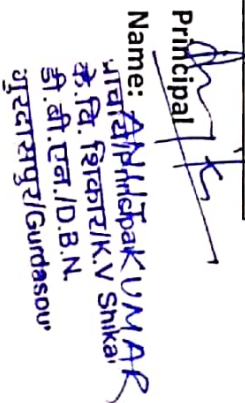 Principal
Name: ANIL KUMAR
प्राचार्य/Principal
के.वि. शिकार/K.V Shikar
डी.बी.एन./D.B.N.
गुरदासपुर/Gurdaspur